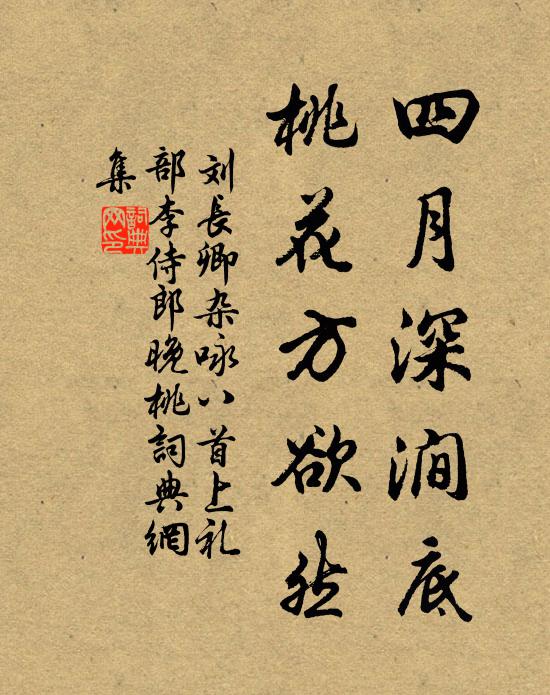 四月深涧底
桃花方欲然
刘長卿杂咏八首上礼
部李侍郎晚桃詞典網
集
詞典
网印